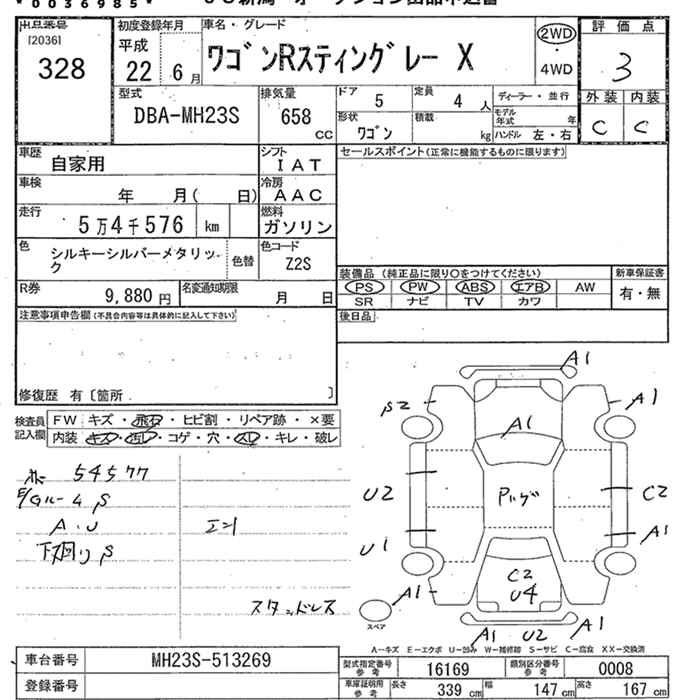 0036985
出品番号 [2036]
328
初度登録年月
平成
22 6月
車名・グレード
ワゴンRスティングレー X
2WD
4WD
評価点
3
外装 内装
C C
型式
DBA-MH23S
排気量
658 CC
ドア 5
定員 4 人
形状 ワゴン
積載 kg
ディーラー・並行
モデル年式 年
ハンドル 左・右
車歴
自家用
シフト
IAT
セールスポイント(正常に機能するものに限ります)
車検
年 月( 日)
冷房
AAC
走行
5万4千576 km
燃料
ガソリン
色
シルキーシルバーメタリック
色替
色コード
Z2S
装備品(純正品に限り○をつけてください)
新車保証書
PS PW ABS エアB AW
有・無
SR ナビ TV カワ
R券
9,880円
名変通知期限
月 日
注意事項申告欄(不具合内容等は具体的に記入して下さい)
後日品
修復歴 有〔箇所 〕
検査員記入欄
FW キズ・飛石・ヒビ割・リペア跡・×要
内装 キズ・汚レ・コゲ・穴・スレ・キレ・破レ
54577
E/gルーム S
A.U
エント
下廻り S
スタッドレス
A1
S2
A1
A1
U2
Pルーグ
C2
U1
A1
A1
C2
U4
A1 U2 A1
スペア
A-キズ E-エクボ U-凹み W-補修跡 S-サビ C-腐食 XX-交換済
車台番号
MH23S-513269
登録番号
型式指定番号 参考
16169
類別区分番号 参考
0008
車庫証明用 参考
長さ 339 cm
幅 147 cm
高さ 167 cm